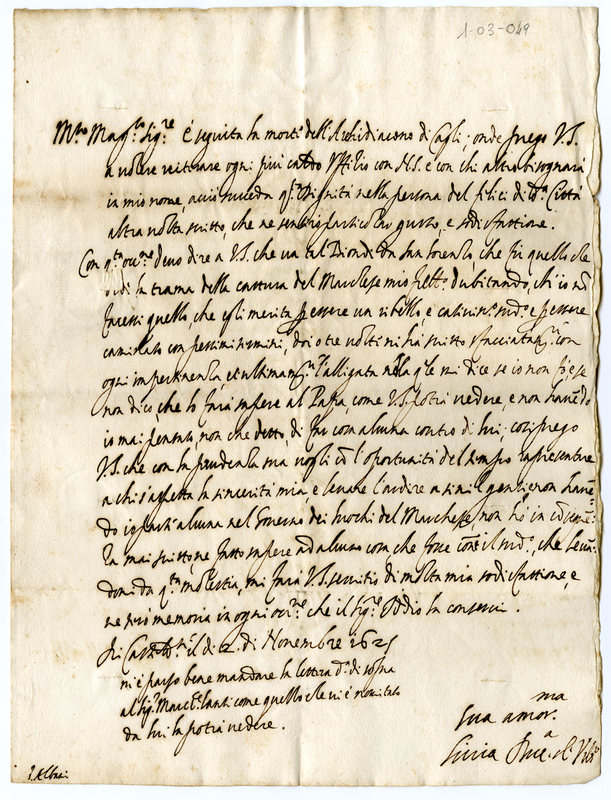 1-03-049
Mto Magco Sigre È seguita la morte dell'Archidiacono di Cagli; onde prego V.S.
a volere reiterare ogni più caldo Uffitio con N.S. e con chi altro bisognarà
in mio nome, acciò succeda qta Dignità nella persona del felici di da Città
altra volta scritto, che ne sentirò particolar gusto, e sodisfattione.
Con qta occne devo dire a V.S. che un tal Biondi da San Lorenzo, che fu quello che
ordì la trama della cattura del Marchese mio fratello dubitando, ch'io nō
facessi quello, che egli merita per essere un ribello, e e pessere
caminato con pessimi termini, doi o tre volte mi hà scritto sfacciatamte con
ogni impertinenza, et ultimamte l'alligata nella qle mi dice se io non fò, e se
non dico, che lo farà sapere al Papa, come V.S. potrà vedere, e non havēdo
io mai pensato non che detto, di far cosa alcuna contro di lui; così prego
V.S. che con la prudenza sua vogli cō l'opportunità del tempo rapresentare
a chi s'aspetta la sincerità mia, e levare l'ardire a simil gente non havē-
do io parte alcuna nel Governo dei luochi del Marchese, non hò in
la mai scritto, ne fatto sapere ad alcuno cosa che fosse contro il sudo, che levā-
domi da qta molestia, mi farà V.S. servitio di molta mia sodisfattione, e
ne terrò memoria in ogni occne che il Sigre Iddio la conservi.
Di il dì 2. di Novembre 1625
mi è parso bene mandare la lettera da di sopra
al Sigr March. come quello che vi è nominato
da lui la potrà vedere.
Sua amorma
Livia Ducssa d'Urbo